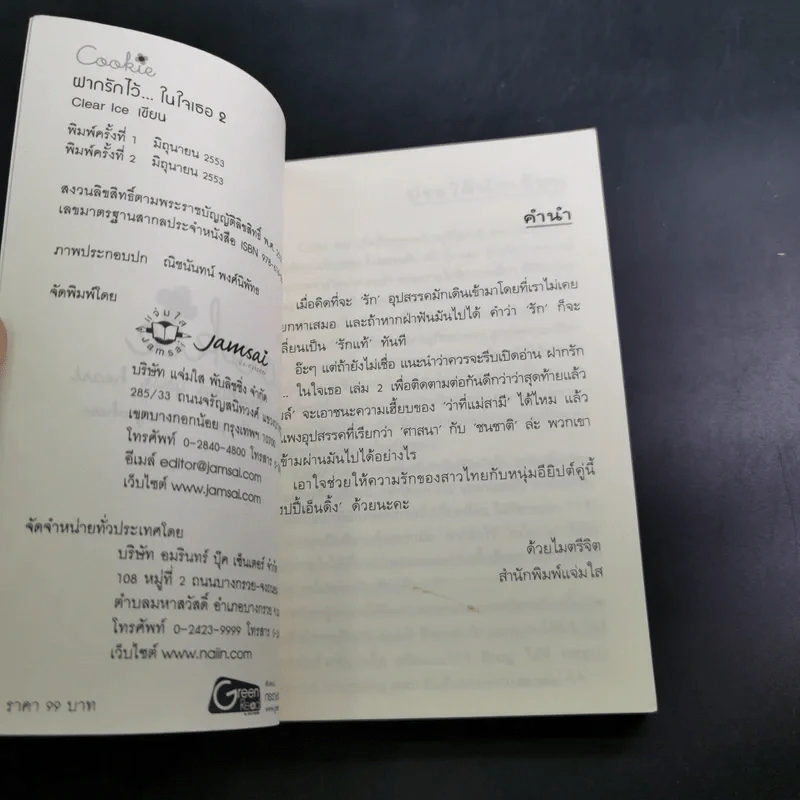 Cookie
ฝากรักไว้... ในใจเธอ 2
Clear Ice เขียน
พิมพ์ครั้งที่ 1 มิถุนายน 2553
พิมพ์ครั้งที่ 2 มิถุนายน 2553
สงวนลิขสิทธิ์ตามพระราชบัญญัติลิขสิทธิ์ พ.ศ.
เลขมาตรฐานสากลประจำหนังสือ ISBN
ภาพประกอบปก ณิชนันทน์ พงศ์นิพัทธ
จัดพิมพ์โดย
แจ่มใส
Jamsai
Jamsai
บริษัท แจ่มใส พับลิชชิ่ง จำกัด
285/33 ถนนจรัญสนิทวงศ์
เขตบางกอกน้อย กรุงเทพฯ
โทรศัพท์ 0-2840-4800 โทรสาร
อีเมล์ editor@jamsai.com
เว็บไซต์ www.jamsai.com
จัดจำหน่ายทั่วประเทศโดย
บริษัท อมรินทร์ บุ๊ค เซ็นเตอร์ จำกัด
108 หมู่ที่ 2 ถนนบางกรวย-
ตำบลมหาสวัสดิ์ อำเภอบางกรวย
โทรศัพท์ 0-2423-9999 โทรสาร
เว็บไซต์ www.naiin.com
ราคา 99 บาท
Green
Read
คำนำ
เมื่อคิดที่จะ 'รัก' อุปสรรคมักเดินเข้ามาโดยที่เราไม่เคย
ยกหาเสมอ และถ้าหากฝ่าฟันมันไปได้ คำว่า 'รัก' ก็จะ
ลี่ยนเป็น 'รักแท้' ทันที
อ๊ะๆ แต่ถ้ายังไม่เชื่อ แนะนำว่าควรจะรีบเปิดอ่าน ฝากรัก
... ในใจเธอ เล่ม 2 เพื่อติดตามต่อกันดีกว่าว่าสุดท้ายแล้ว
จะเอาชนะความเฮี้ยบของ 'ว่าที่แม่สามี' ได้ไหม แล้ว
แพงอุปสรรคที่เรียกว่า 'ศาสนา' กับ 'ชนชาติ' ล่ะ พวกเขา
ข้ามผ่านมันไปได้อย่างไร
เอาใจช่วยให้ความรักของสาวไทยกับหนุ่มอียิปต์คู่นี้
ปปี้เอ็นดิ้ง' ด้วยนะคะ
ด้วยไมตรีจิต
สำนักพิมพ์แจ่มใส